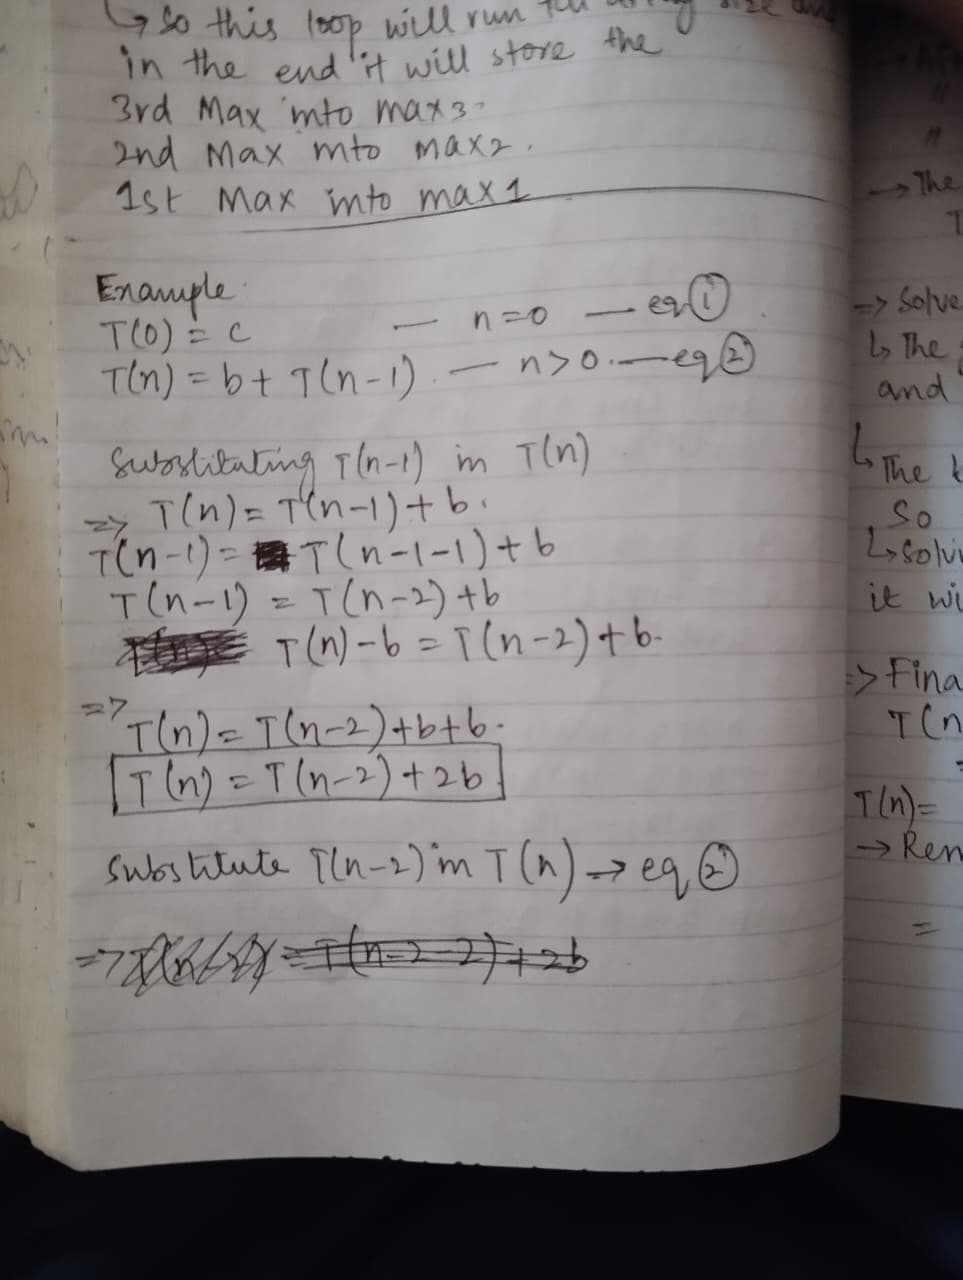 ↳ so this loop will run till array size and
in the end it will store the
3rd Max into max3.
2nd Max into max2.
1st Max into max1
Example:
T(0) = c — n=0 — eq①
T(n) = b + T(n-1). — n>0. — eq②
Substituting T(n-1) in T(n)
=> T(n) = T(n-1) + b.
T(n-1) = T(n-1-1) + b
T(n-1) = T(n-2) + b
T(n) - b = T(n-2) + b.
=> T(n) = T(n-2) + b + b.
T(n) = T(n-2) + 2b
substitute T(n-2) in T(n) → eq②
=> = T(n-2-2) + 2b
→ The
T
=> Solve
↳ The
and
↳ The
So
↳ Solvi
it wi
=> Fina
T(n
T(n) =
→ Ren
=